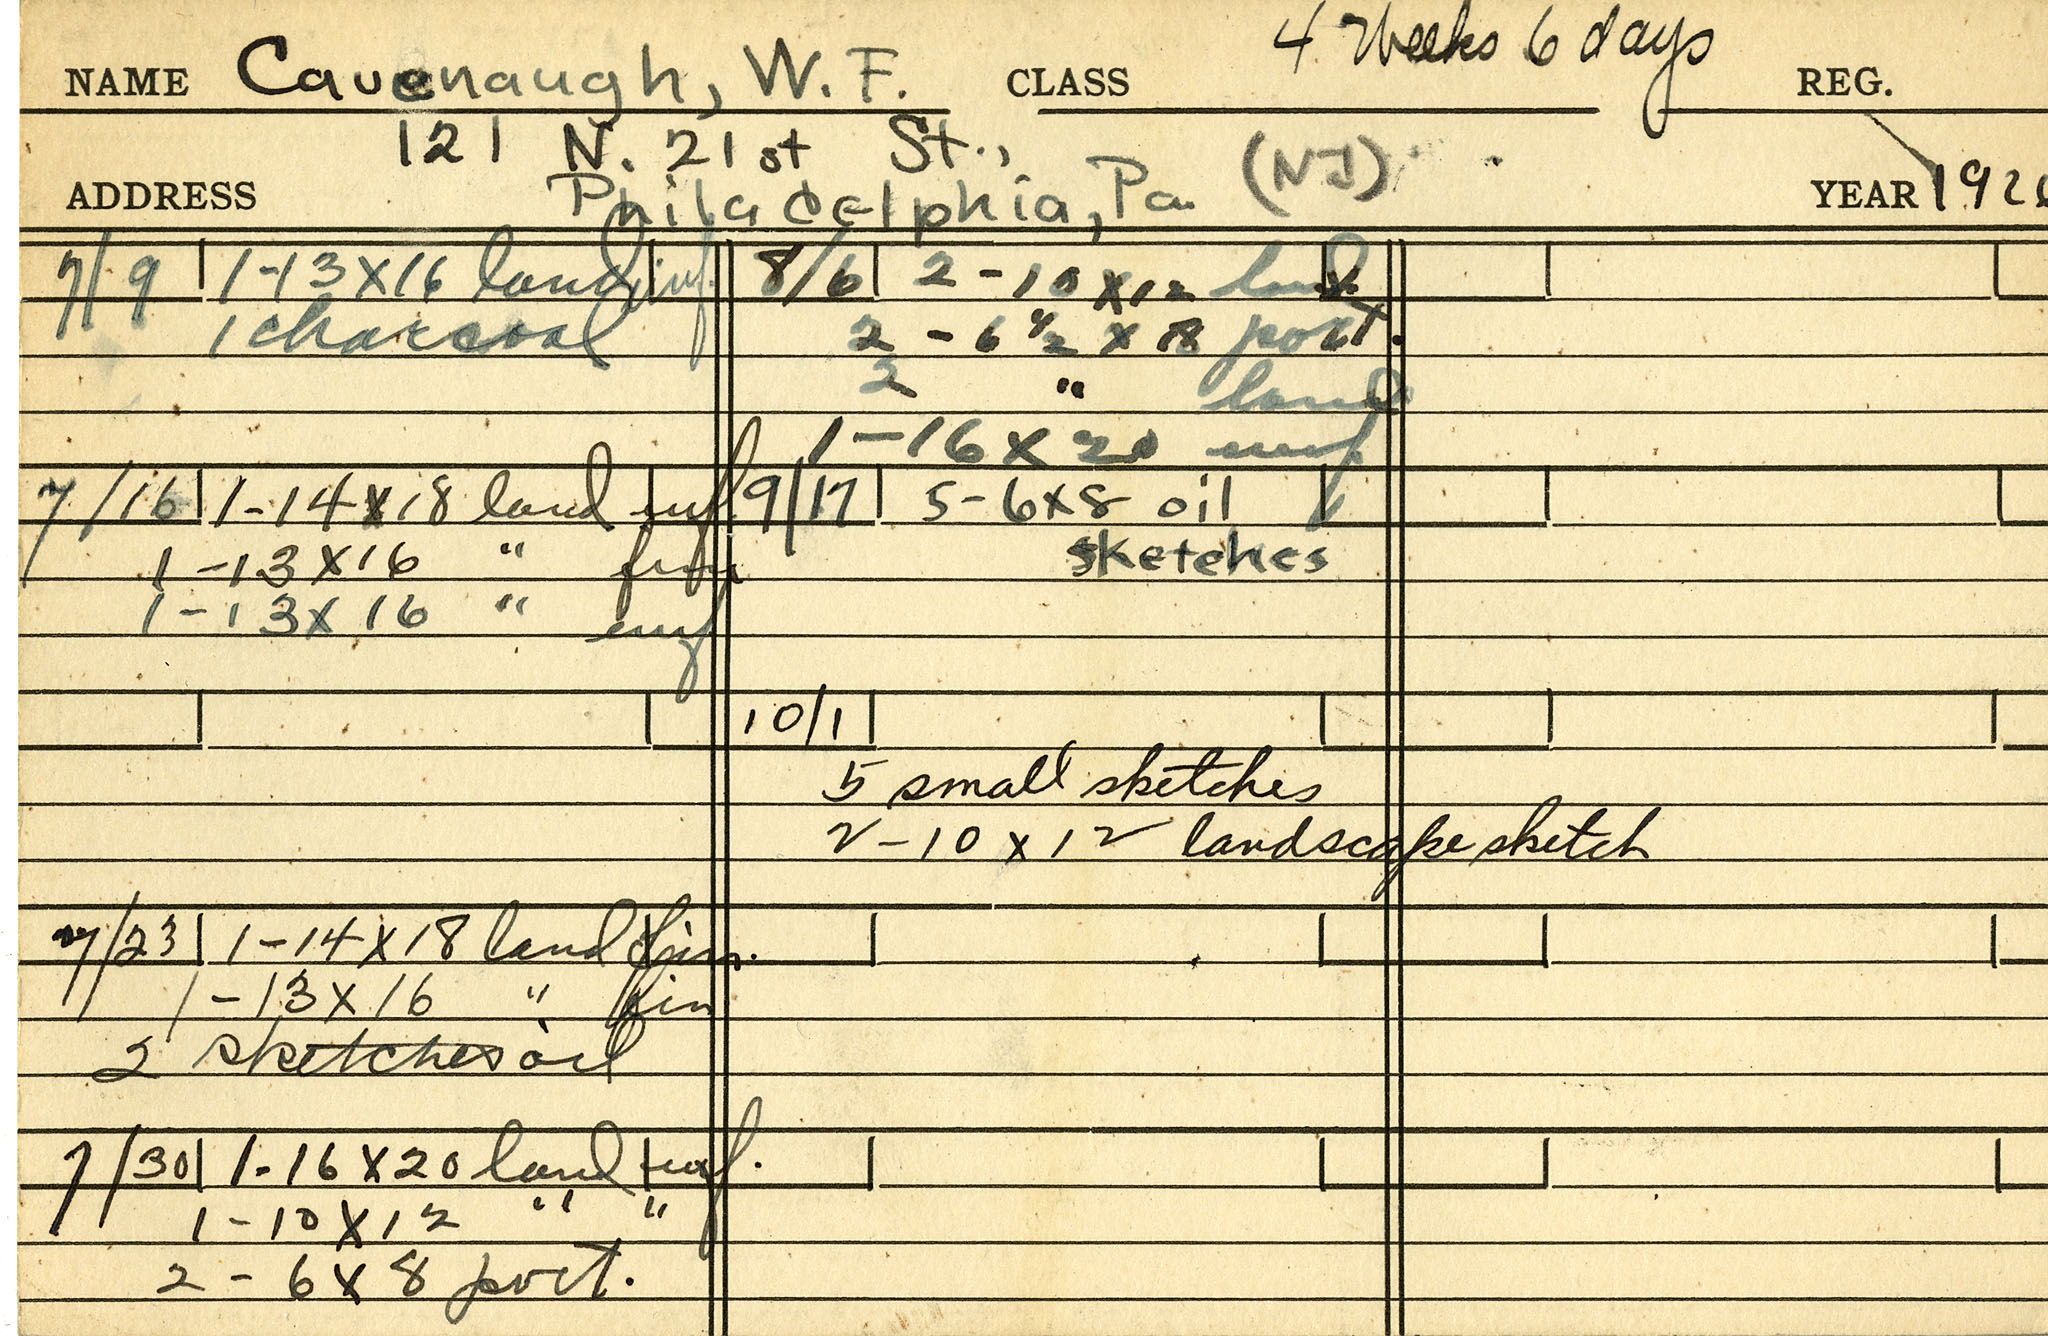 4 Weeks 6 days
NAME Cavenaugh, W. F. CLASS REG.
121 N. 21st St.,
ADDRESS Philadelphia, Pa. (NJ) YEAR 192
7/9 1-13 X 16 land unf.
1 charcoal
7/16 1-14 X 18 land unf.
1-13 X 16 " fin
1-13 X 16 " unf
7/23 1-14 X 18 land fin.
1-13 X 16 " fin
2 sketches oil
7/30 1-16 X 20 land unf.
1-10 X 12 " "
2-6 X 8 port.
8/6 2-10 X 12 land
2-6 1/2 X 8 port.
2 " land
1-16 X 20 unf
9/17 5-6 X 8 oil
sketches
10/1
5 small sketches
2-10 x 12 landscape sketch